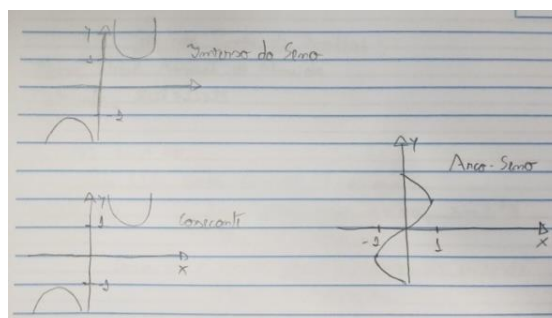 Y
1
Inverso do Seno
-1
Y
1
Cossecante
X
-1
Y
Arco-Seno
-1
1
X